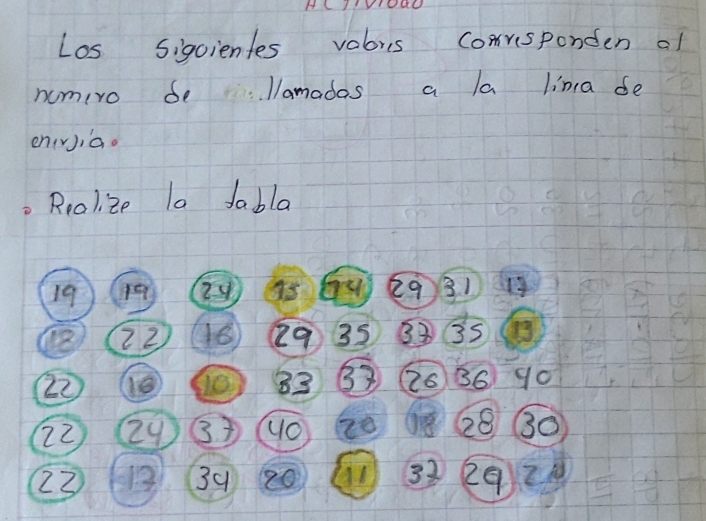 ACTIVIDAD
Los siguientes valores corresponden al
numero de llamadas a la linea de
enerjía.
Realize la tabla
19 19 24 15 14 29 31 17
18 22 16 29 35 37 35 13
22 16 10 33 37 26 36 40
22 24 37 40 20 18 28 30
22 17 34 20 11 37 29 20